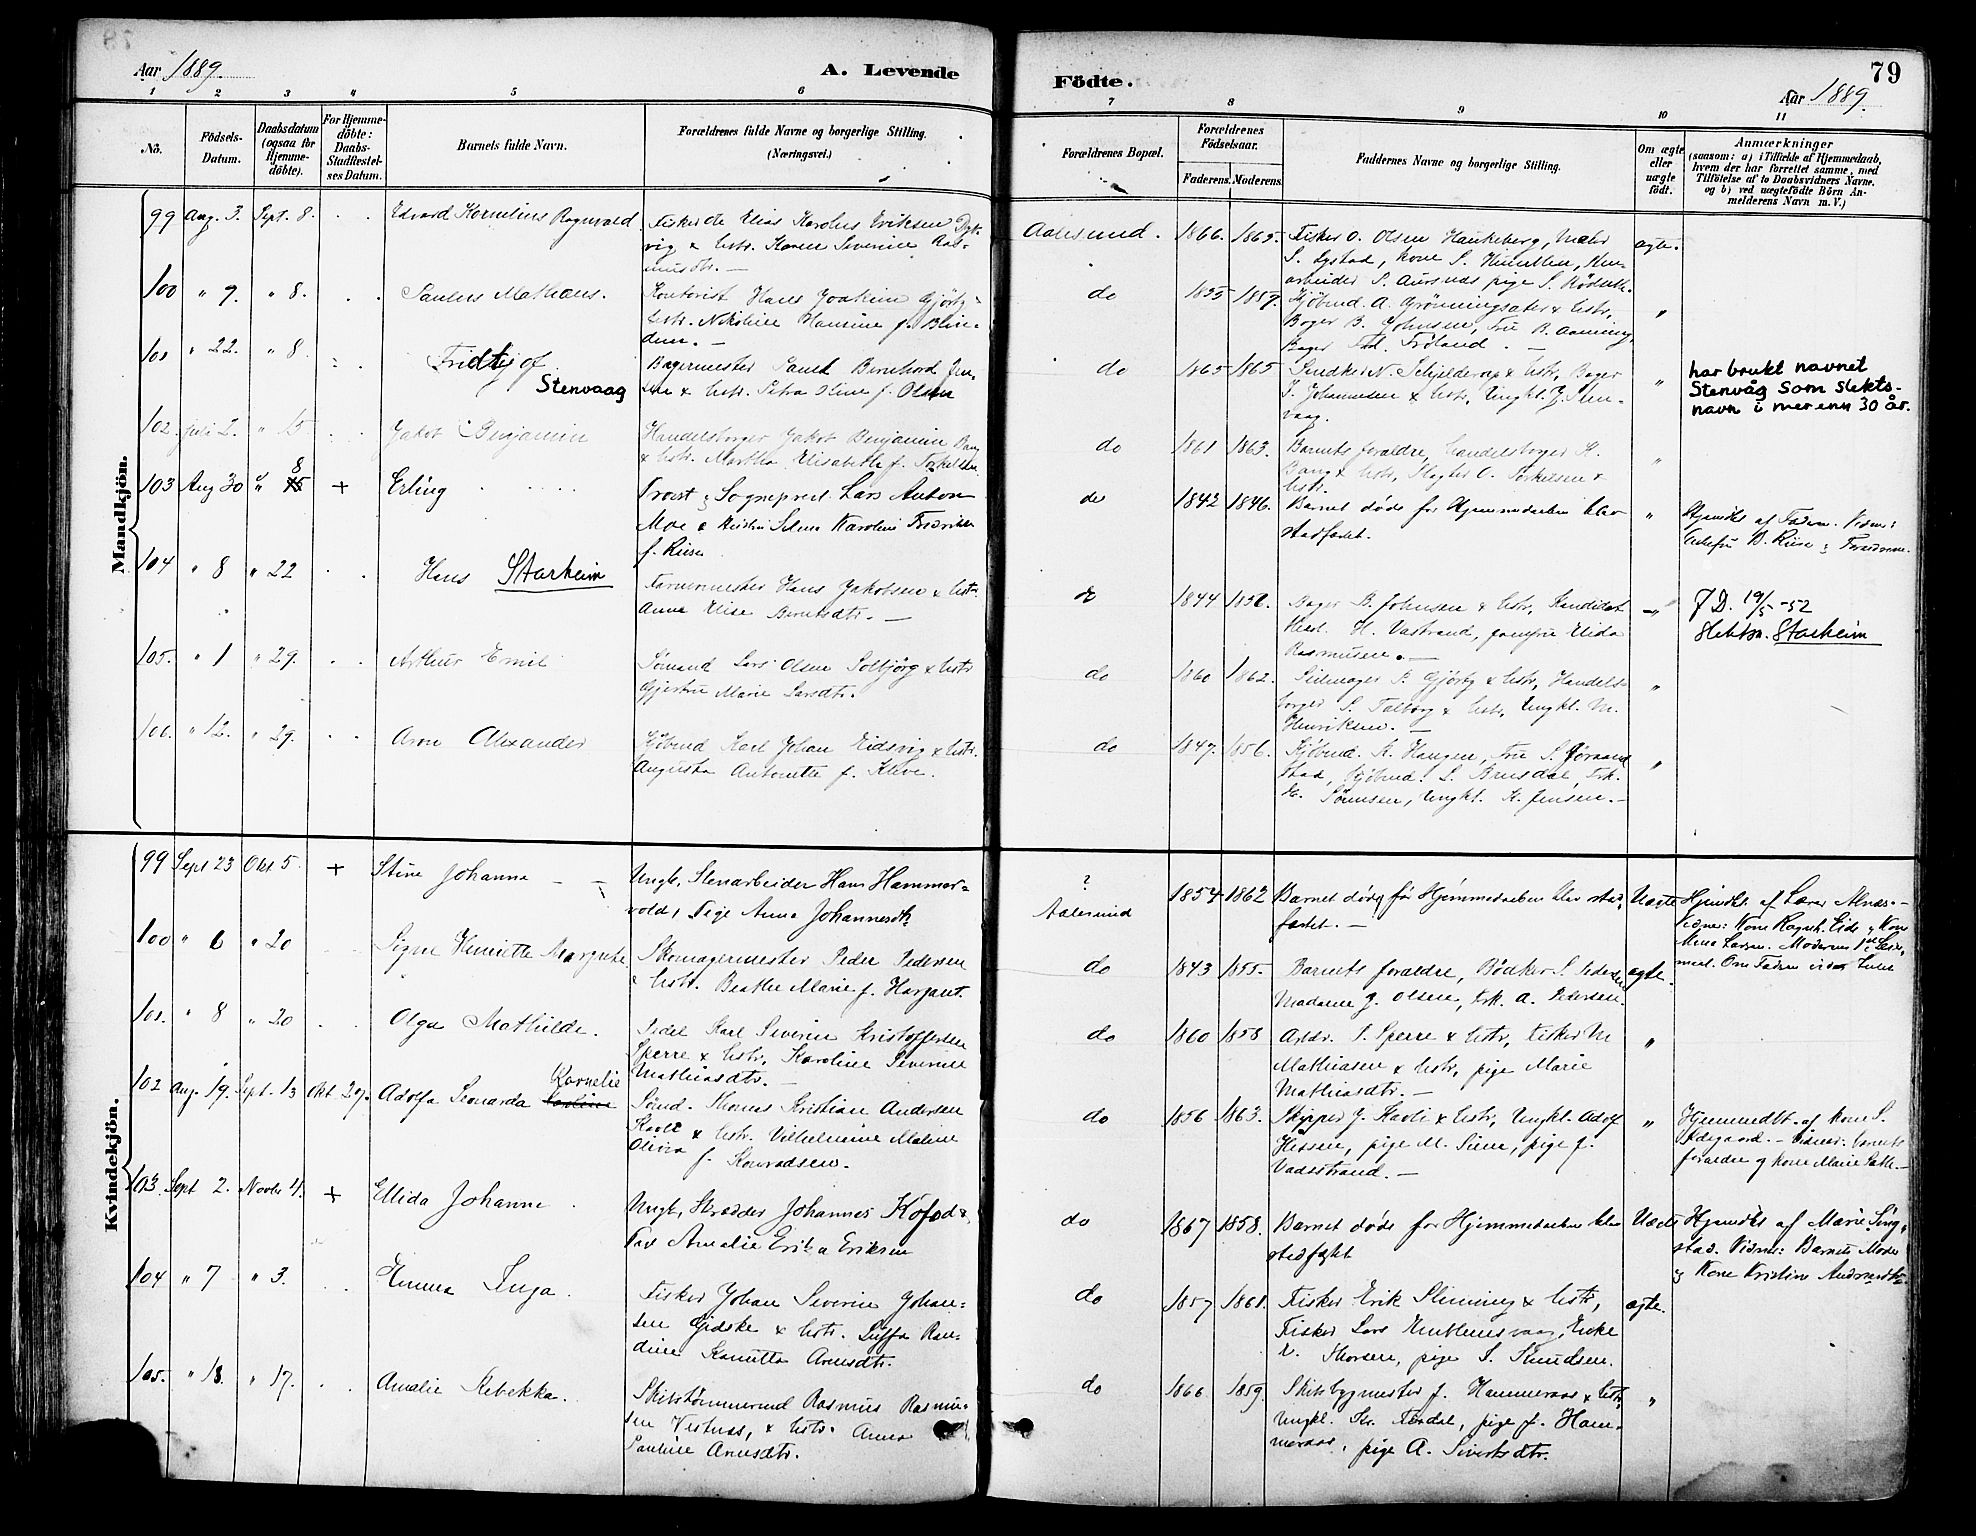 79
Aar 1889.
A. Levende
Födte.
Aar 1889.
1 2 3 4 5 6 7 8 9 10 11
No.
Födsels-
Datum.
Daabsdatum
(ogsaa for
Hjemme-
döbte).
For Hjemme-
döbte:
Daabs-
Stadfæstel-
ses Datum.
Barnets fulde Navn.
Forældrenes fulde Navne og borgerlige Stilling.
(Næringsvei.)
Forældrenes Bopæl.
Forældrenes
Födselsaar.
Faderens. Moderens.
Faddernes Navne og borgerlige Stilling.
Om ægte
eller
uægte
födt.
Anmærkninger
(saasom: a) i Tilfælde af Hjemmedaab,
hvem der har forrettet samme, med
Tilföielse af to Daabsvidners Navne,
og b) ved uægtefödte Börn An-
melderens Navn m. V.)
Mandkjön.
99 Aug. 3. Sept. 8. Edvard Kornelius Ragnvald
Fisker Ole Elias Karolus Eriksen Dyk-
vig & Hstr. Karen Severine Ras-
musdtr. —
Aalesund. 1866. 1865.
Fisker O. Olsen Haukeberg,
S. Systad, Kone S.
arbeider S. Aursnes pige S.
ægte.
100 " 9. " 8. Paulus Mathæus.
Kontorist Hans Joakim Gjörtz
Hstr. Nikoline Hansine f. Blin-
dem. —
do 1855 1857.
Kjöbmd. A. Grönningsæter & Hstr,
Bager B. Johnsen, Fru B. Aarning,
Bager Fröland. —
"
101 " 22. " 8 Fridtjof
Stenvaag
Bagermester Paul Bernhard Jen-
sen & Hstr. Petra Oline f. Olsen
do 1865 1865
N. Schjelderup & Hstr, Bager
J. Johannesen & Hstr, Ungkl. J. Sten-
vaag.
"
har brukt navnet
Stenvåg som slekts-
navn i mer enn 30 år.
102. Juli 2. " 15 Jakob Benjamin
Handelsborger Jakob Benjamin Bang
& Hstr. Martha Elisabeth f. Torkelsen
do 1861 1863.
Barnets forældre, Handelsborger K.
Bang & Hstr, Slagter O. Torkelsen &
Hstr.
"
103 Aug 30 " 8 + Erling
Provst & Sognepræst Lars Anton
Moe & Hustru Selma Karoline Fredrikke
f. Riise
do 1842 1846.
Barnet döde för Hjemmedaaben blev
stadfæstet.
"
Hjemdbt af Faderen. Vidner:
B. Riise &
104 " 8 " 22 Hans Starheim
Farvermester Hans Jakobsen & Hstr.
Anna Elise Berntsdtr. —
do 1844 1856.
Bager B. Johnsen & Hstr, Kandidat
H. Vastrand, jomfru Elida
Rasmusen. —
"
J D. 19/5-52
slektsn. Starheim
105. " 1 " 29. Arthur Emil
Sömand Lars Olsen Solbjörg & Hstr
Gjertru Marie Larsdtr.
do 1860 1862.
Seilmager P. Gjörtz & Hstr, Handels-
borger S. Talborg & Hstr, Ungkl. M.
Henriksen. —
"
106. " 12. " 29. Aron Alexander
Kjöbmd Karl Johan Eidsvig & Hstr.
Augusta Antonette f. Kleve.
do 1847. 1856.
Kjöbmd. K. Haugen, Fru S. Görand
stad, Kjöbmd. L. Brusdal, Frk.
K. Sörensen, Ungkl. K. Jensen. —
"
Kvindekjön.
99 Sept 23 Okt. 5. + Stine Johanna — —
Ungk, Stenarbeider Hans Hammer-
vold, Pige Anna Johannesdtr
?
Aalesund 1854 1862
Barnet döde för Hjemmedaaben blev stad-
fæstet. —
Uægte
Hjemdbt. af Lærer Alnæs. —
Vidner: Kone Ragnh. Eide & Kone
Mina Larsen. Moderens 1ste
100 " 6 " 20 Signe Henriette Margrete.
Skomagermester Peder Pedersen
& Hstr. Beathe Marie f. Hargaut.
do 1843 1855.
Barnets forældre, Bödker S. Pedersen
Madame J. Olsen, Frk. A. Petersen.
ægte.
101. " 8 " 20 Olga Mathilde.
Pedel Karl Severin Kristoffersen
Sperre & Hstr, Karoline Severine
Mathiasdtr. —
do 1860 1858
Arbdr. S. Sperre & Hstr, Fisker M
Mathiasen & Hstr, pige Marie
Mathiasdtr. —
"
102 Aug. 19. Sept. 13 Okt. 20. Adolfa Leonarda Kornelie
Sömd. Thomas Kristian Andersen
Kavli & Hstr. Vilhelmine Maline
Olivia f. Konradsen.
do 1856 1863.
Skipper J. Kavli & Hstr, Ungkl. Adolf
Hessen, pige M. Sune, pige J.
Vadsstrand. —
"
Hjemmedbt. af Kone S.
Ödegaard. — Vidner: Barnets
forældre og Kone Marie
103. Sept 2. Novbr 4. + Ellida Johanne
Ungk, Skrædder Johannes Kofod &
Pige Amalie Erika Eriksen
do 1867 1858.
Barnet döde för Hjemmedaaben blev
stadfæstet
Uægte
Hjemdbt af Marie Ling-
stad. Vidner: Barnets Moder
& Kone Kristine Andreasdtr
104 " 7 " 3. Emma Inga.
Fisker Johan Severin Johan-
sen Gidske & Hstr. Luffa Ran-
dine Kanutta Arnesdtr.
do 1857 1861.
Fisker Erik Slinning & Hstr,
Fisker Lars Emblemsvaag, Enke
V. Thorsen, pige S. Knudsen.
ægte.
105. " 18. " 17. Amalie Rebekka.
Skibstömmermd Rasmus Rasmus-
sen Vestnæs, & Hstr. Anna
Pauline Arnesdtr.
do 1866 1859.
Skibsbygmester J. Hammeraas & Hstr,
Ungkl. Kr. Fendal, pige J. Ham-
meraas, pige A. Sivertsdtr.
"